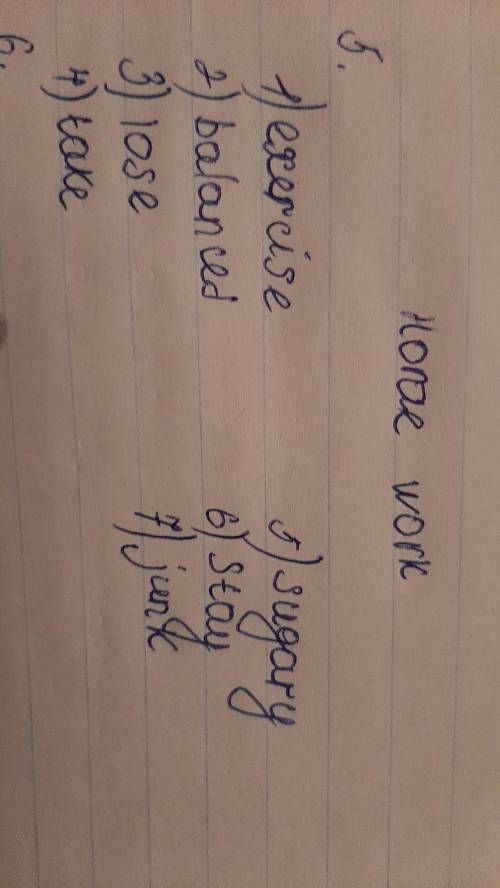 Home work
5.
1) exercise 5) sugary
2) balanced 6) stay
3) lose 7) junk
4) take
6.